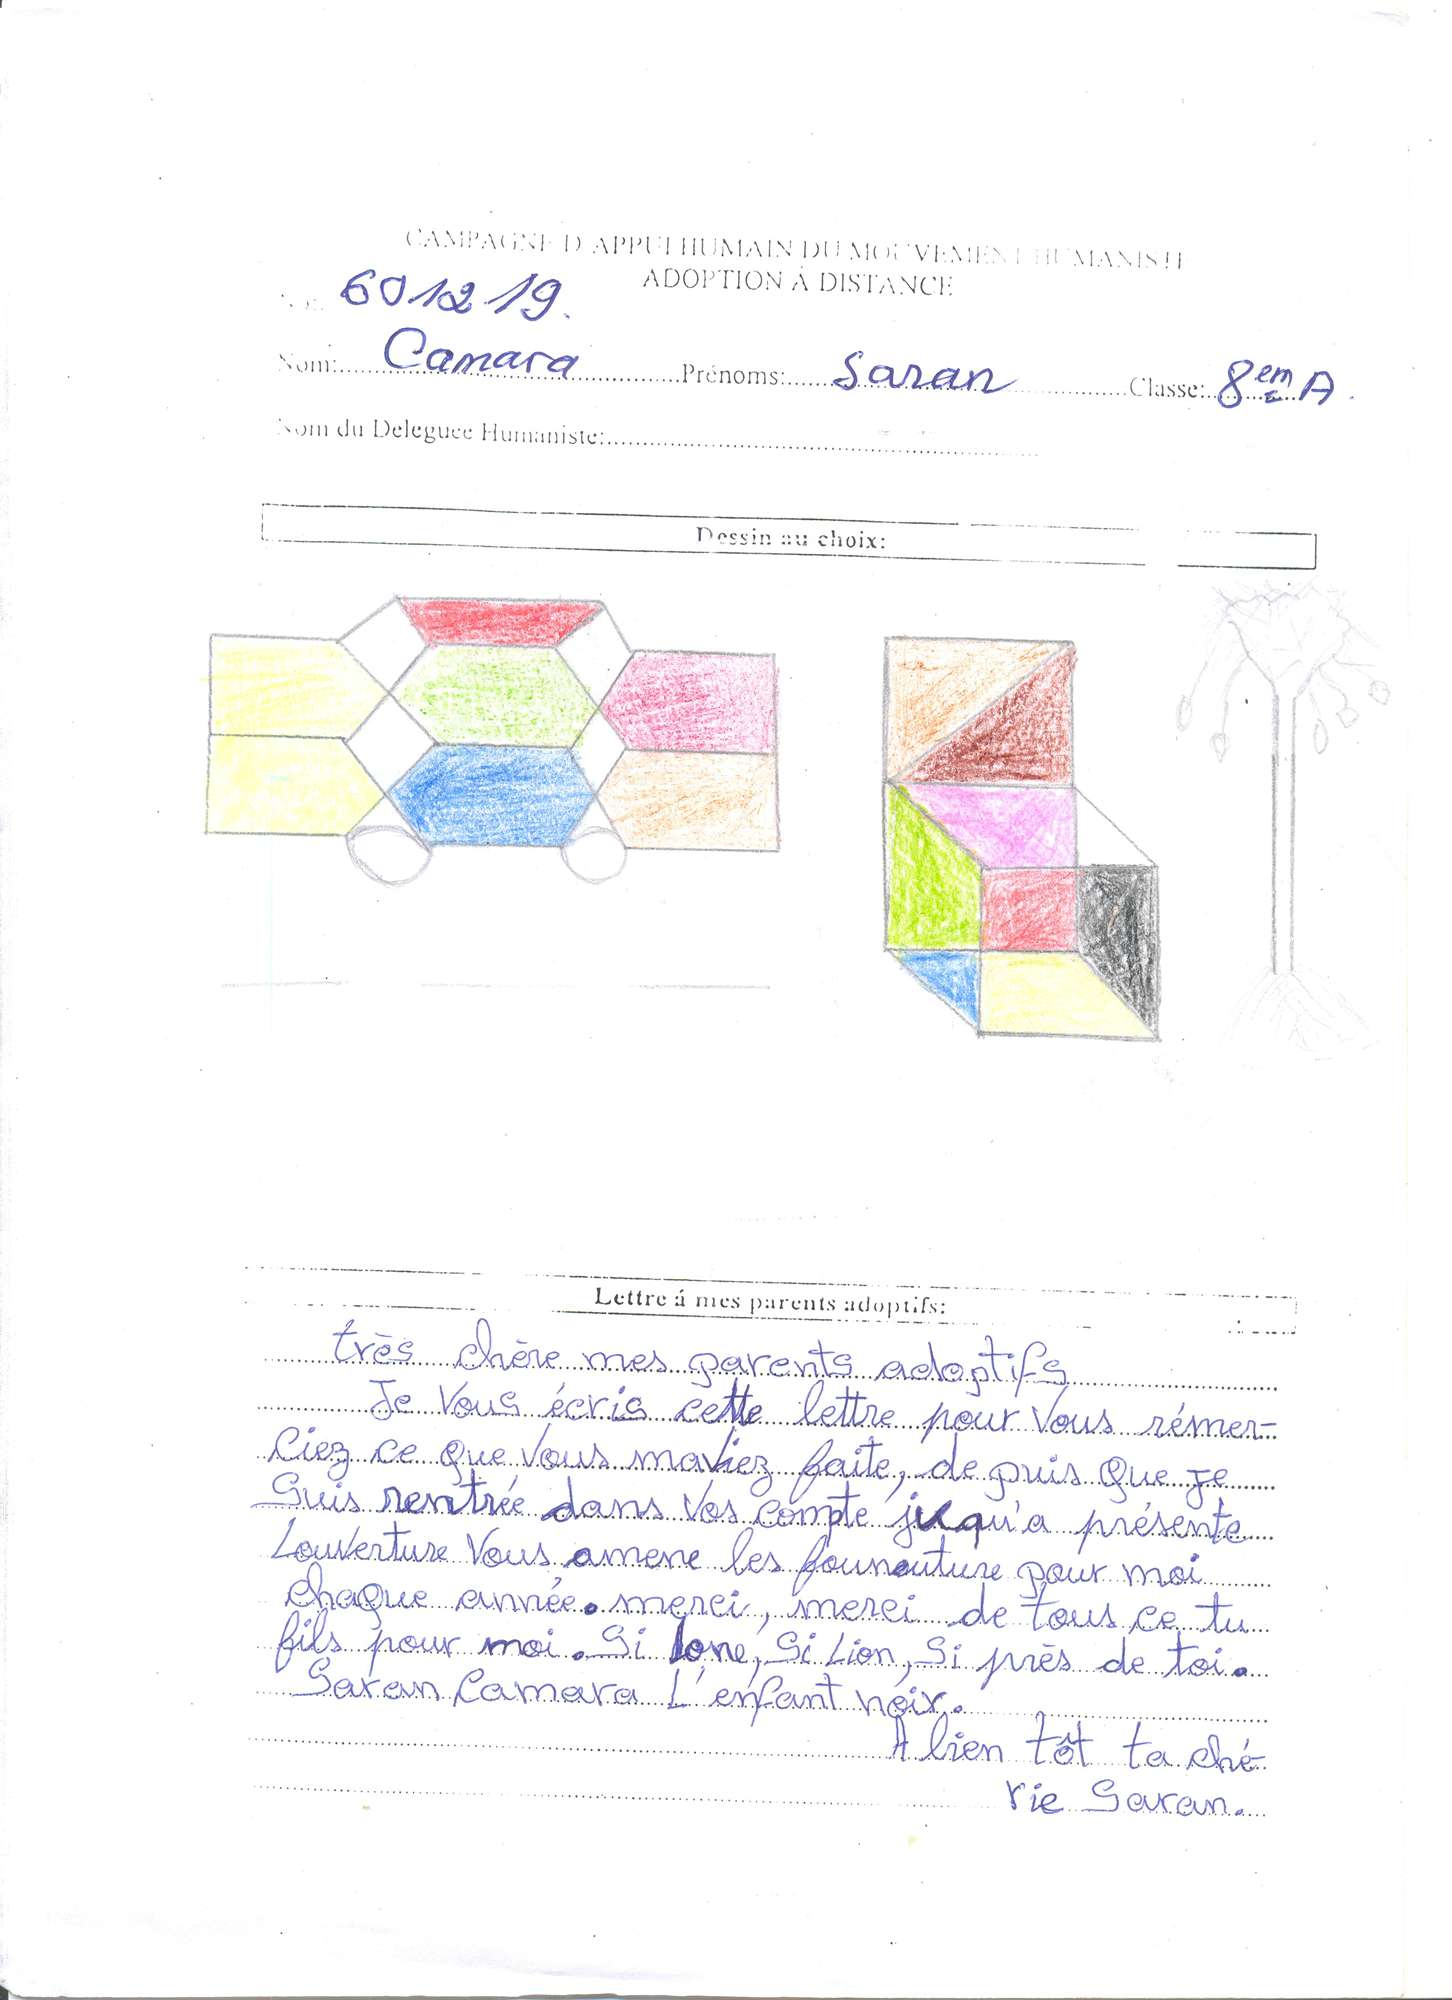 CAMPAGNE D'APPUI HUMAIN DU MOUVEMENT HUMANISTE
ADOPTION À DISTANCE
601219.
Nom: Camara Prénoms: Saran Classe: 8em A.
Nom du Deleguee Humaniste:
Dessin au choix:
Lettre á mes parents adoptifs:
très chère mes parents adoptifs
Je Vous écris cette lettre pour Vous rémer-
ciez ce que Vous maviez faite, de puis que je
Suis rentrée dans Vos compte juqu'a présente
Louverture Vous amene les founouture pour moi
chaque année. merci, merci de tous ce tu
fils pour moi. Si loné, Si Lion, Si près de toi.
Saran Camara L'enfant noir.
A bien tôt ta ché-
rie Saran.